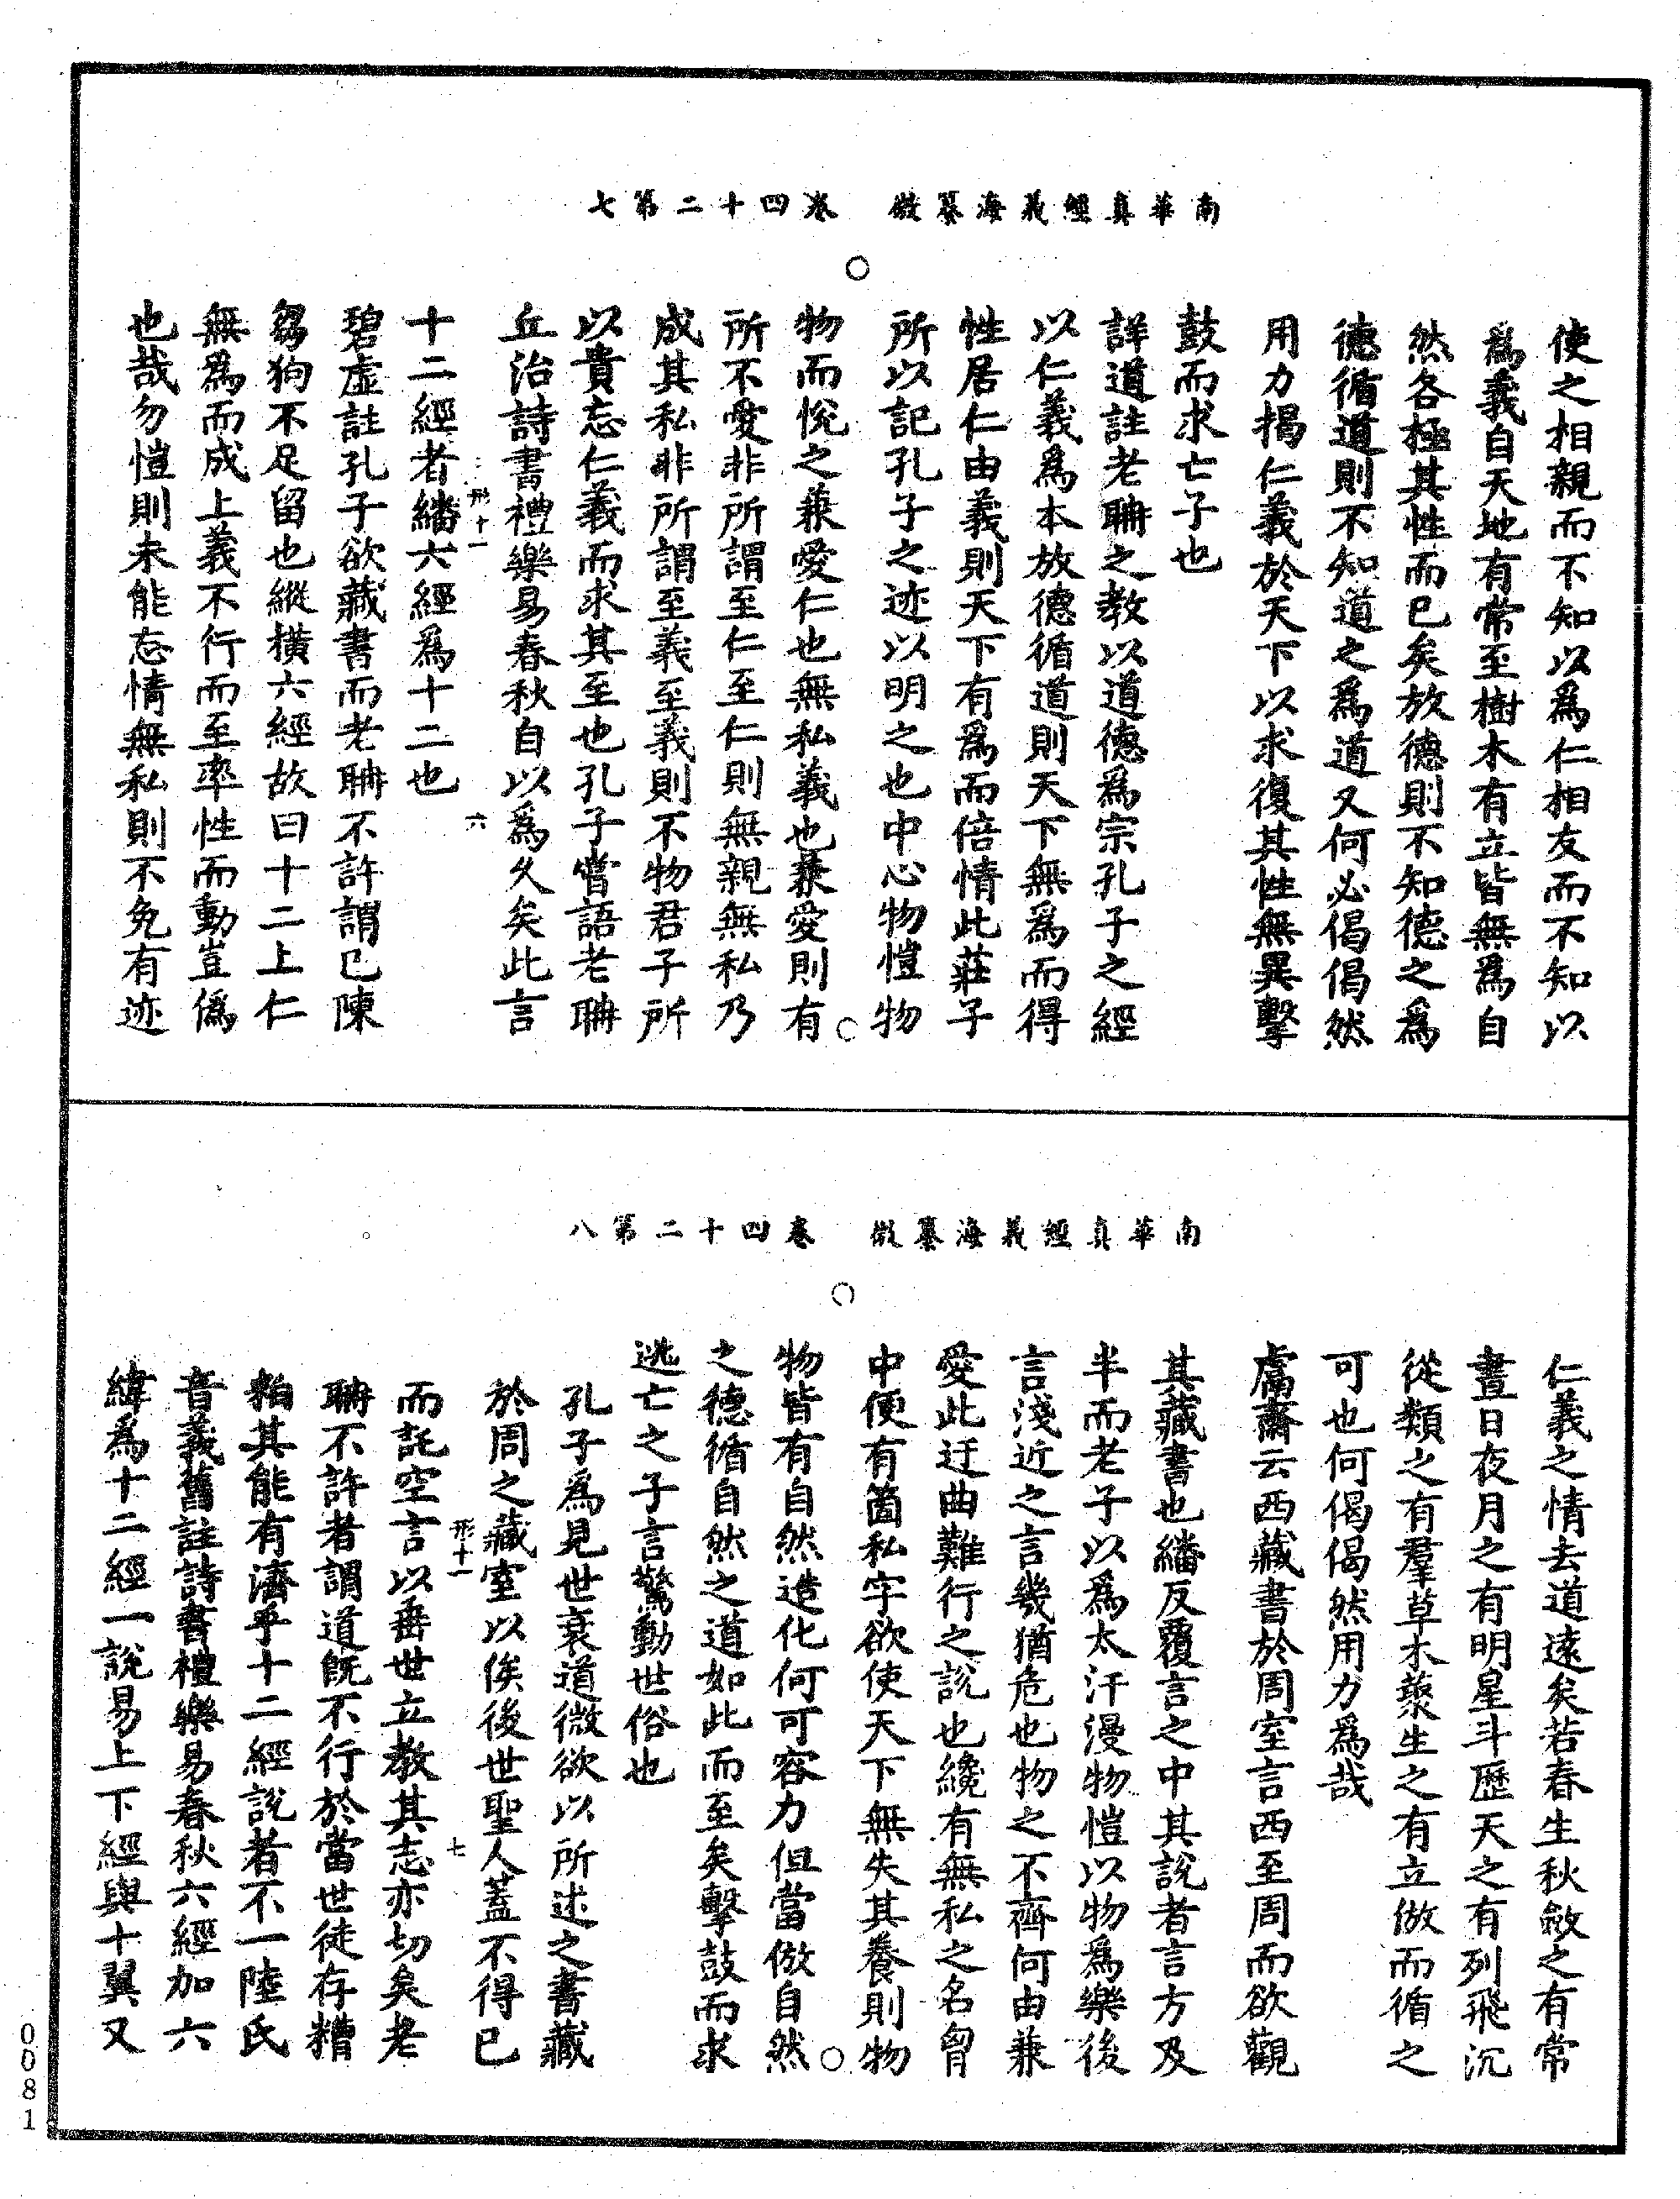 南華真經義海纂微　卷四十二第七
使之相親而不知以爲仁相友而不知以
爲義自天地有常至樹木有立皆無爲自
然各極其性而已矣放德則不知德之爲
德循道則不知道之爲道又何必偈偈然
用力揭仁義於天下以求復其性無異擊
鼓而求亡子也
詳道註老聃之教以道德爲宗孔子之經
以仁義爲本放德循道則天下無爲而得
性居仁由義則天下有爲而倍情此莊子
所以記孔子之迹以明之也中心物愷物
物而悅之兼愛仁也無私義也兼愛則有
所不愛非所謂至仁至仁則無親無私乃
成其私非所謂至義至義則不物君子所
以貴忘仁義而求其至也孔子嘗語老聃
丘治詩書禮樂易春秋自以爲久矣此言
形十一
六
十二經者繙六經爲十二也
碧虛註孔子欲藏書而老聃不許謂已陳
芻狗不足留也縱橫六經故曰十二上仁
無爲而成上義不行而至率性而動豈僞
也哉勿愷則未能忘情無私則不免有迹
南華真經義海纂微　卷四十二第八
仁義之情去道遠矣若春生秋斂之有常
晝日夜月之有明星斗歷天之有列飛沉
從類之有羣草木叢生之有立倣而循之
可也何偈偈然用力爲哉
鬳齋云西藏書於周室言西至周而欲觀
其藏書也繙反覆言之中其說者言方及
半而老子以爲太汗漫物愷以物爲樂後
言淺近之言幾猶危也物之不齊何由兼
愛此迂曲難行之說也纔有無私之名胷
中便有箇私字欲使天下無失其養則物
物皆有自然造化何可容力但當倣自然
之德循自然之道如此而至矣擊鼓而求
逃亡之子言驚動世俗也
孔子爲見世衰道微欲以所述之書藏
於周之藏室以俟後世聖人蓋不得已
形十一
七
而託空言以垂世立教其志亦切矣老
聃不許者謂道旣不行於當世徒存糟
粕其能有濟乎十二經說者不一陸氏
音義舊註詩書禮樂易春秋六經加六
緯爲十二經一說易上下經與十翼又
0081